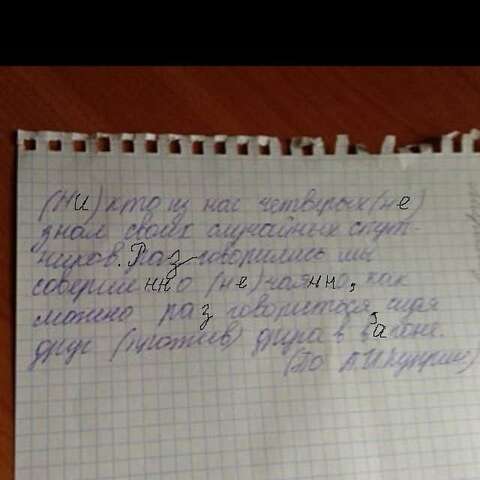 (Ни)кто из нас четверых (не)
знал своих случайных спут-
ников. Разговорились мы
совершенно (не)чаянно, как
можно разговориться сидя
друг (против) друга в вагоне.
(По А.И Куприну)